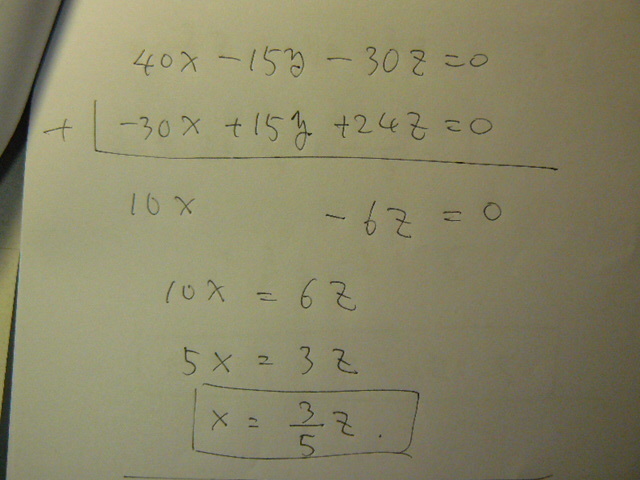 40x - 15y - 30z = 0
+ -30x + 15y + 24z = 0
10x - 6z = 0
10x = 6z
5x = 3z
x = 3/5 z.